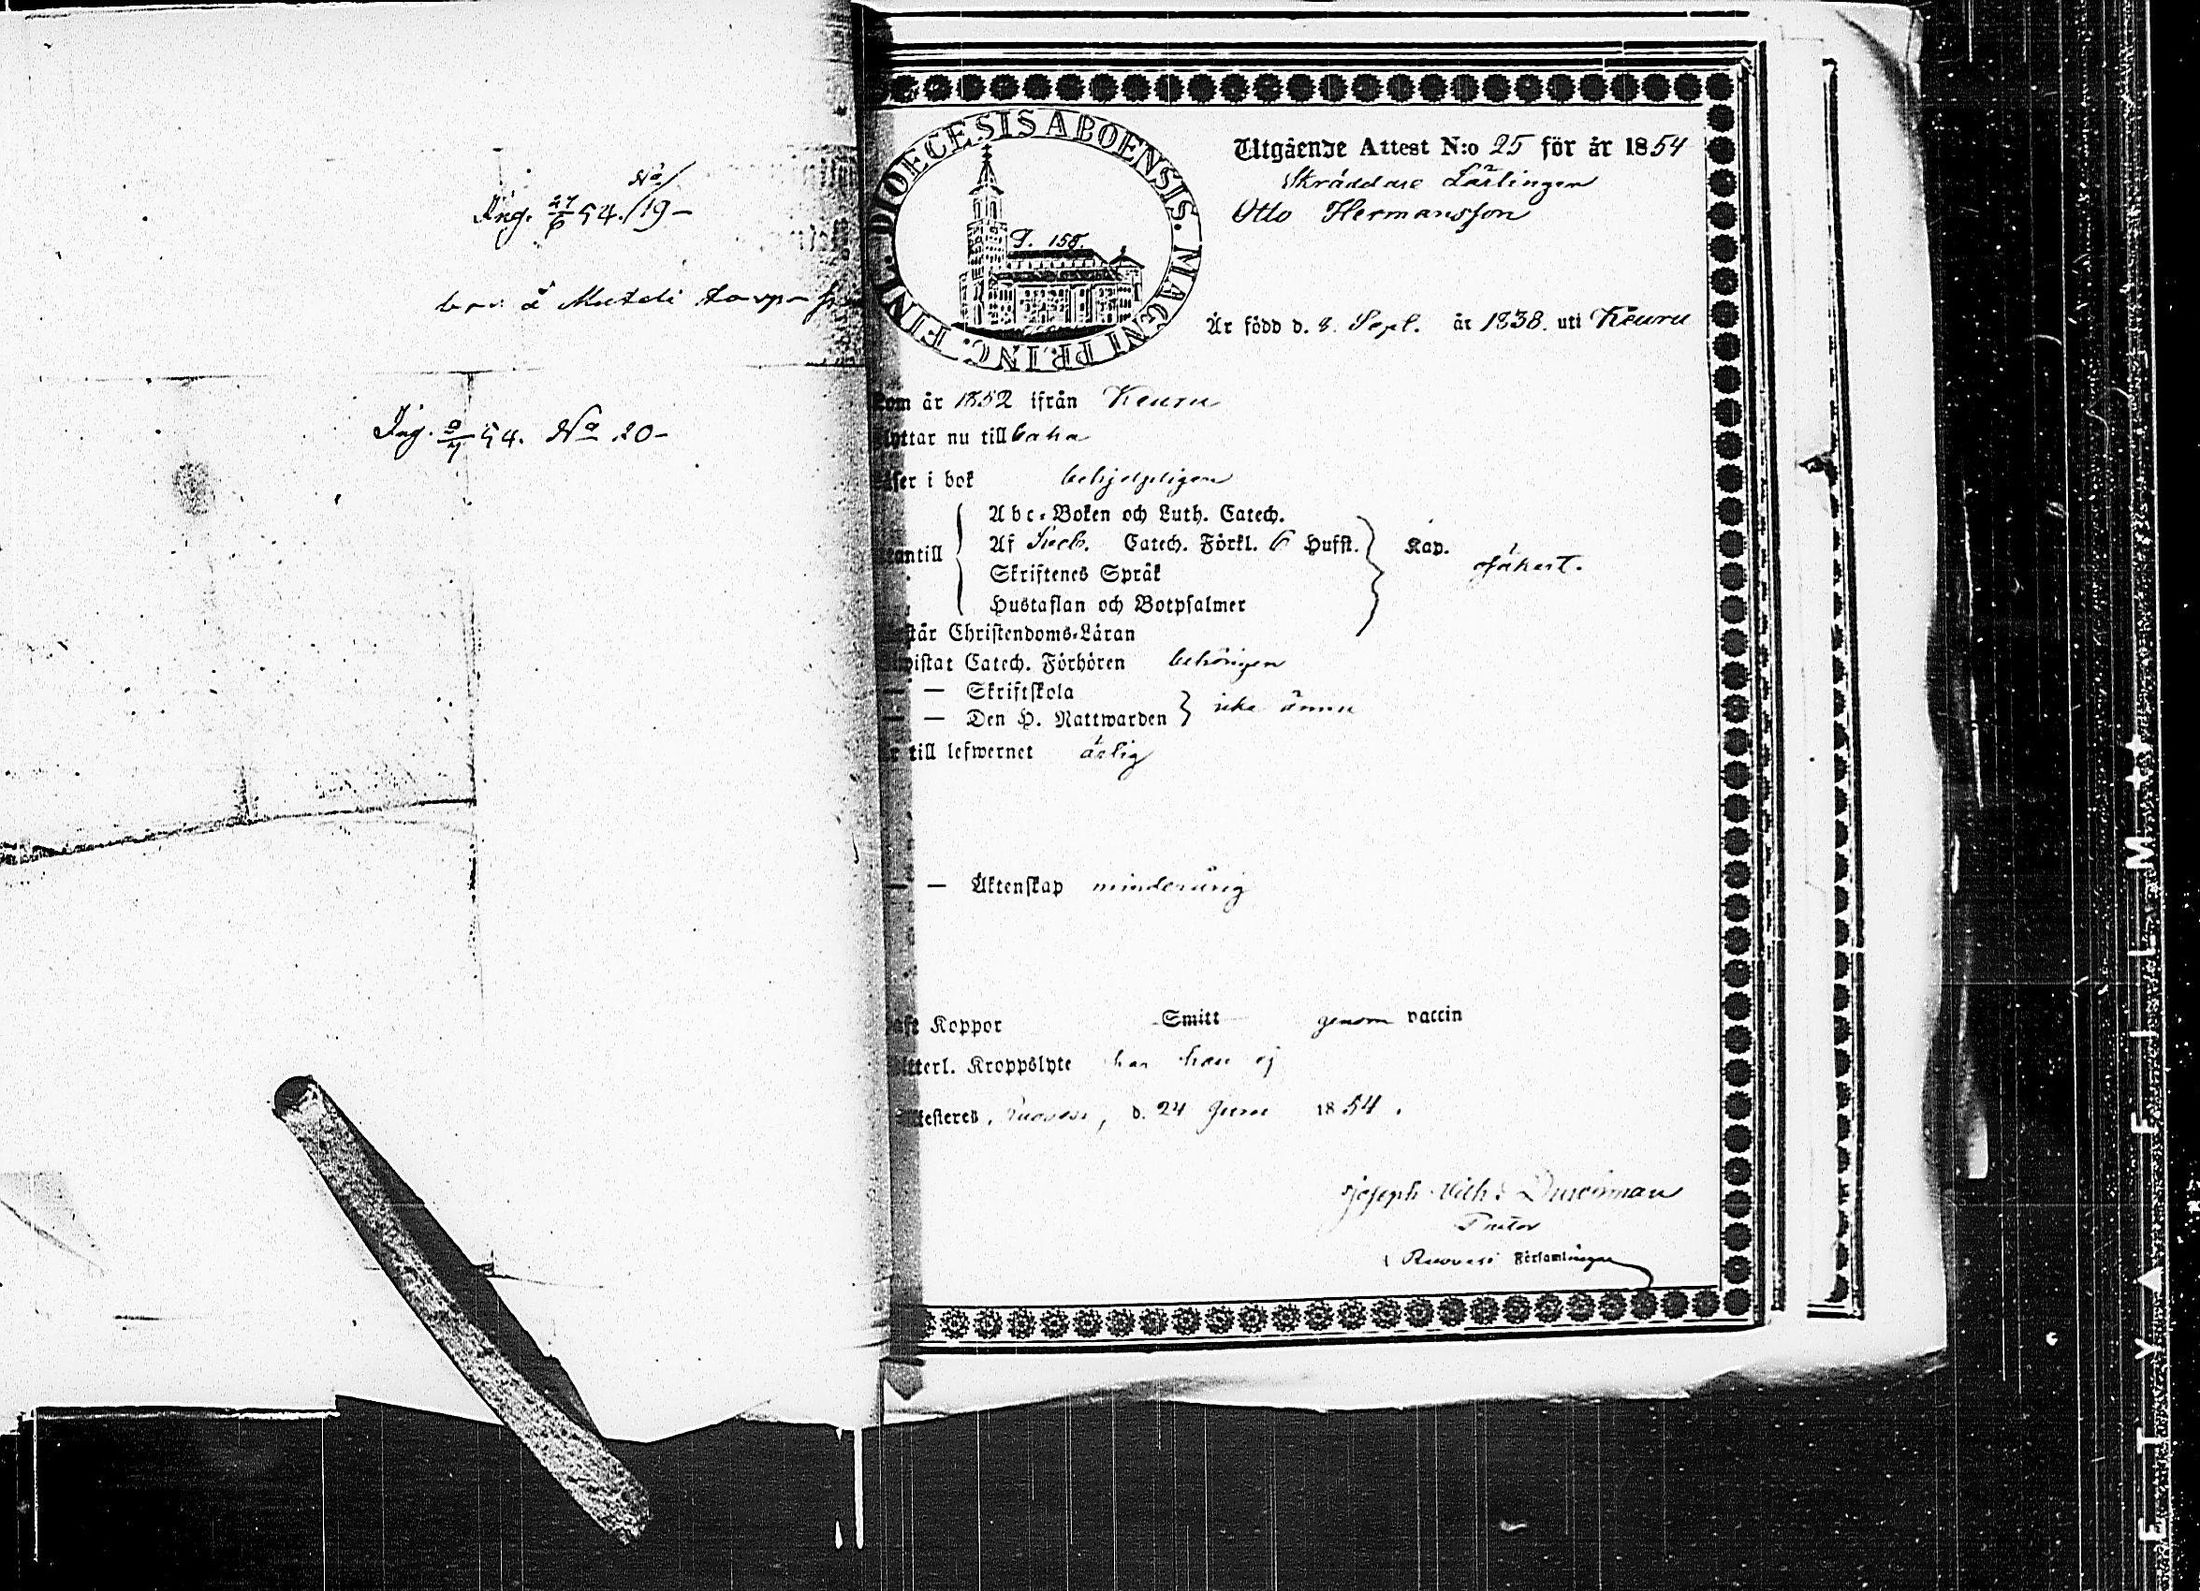 No
Ing. 27/6 54. /19-
bor å Mutdi torp
Ing. 9/7 54. No 20-
DIOECESIS ABOENSIS. MAGNI PRINC. FINL.
P. 158.
Utgående Attest N:o 25 för år 1854
Skräddare Lärlingen
Otto Hermansson
Är född d. 8. Sept. år 1838. uti Keuru
Kom år 1852 ifrån Keuru
flyttar nu tillbaka
läser i bok behjelpligen
utantill
Abc-Boken och Luth. Catech.
Af Sveb. Catech. Förkl. 6 Hufst.
Skriftenes Språk
Hustaflan och Botpsalmer
Kap.
osäkert.
står Christendoms-Läran
bewistat Catech. Förhören behörigen
— — Skriftskola
— — Den H. Nattwarden
icke ännu
Är till lefwernet ärlig
— — Äktenskap minderårig
haft Koppor Smitt genom vaccin
ytterl. Kroppslyte har han ej
Attesteres, Ruovesi, d. 24 Juni 1854.
Joseph Vilh: Durchman
Pastor
i Ruovesi Församlingar
ETY ▲ FILMI